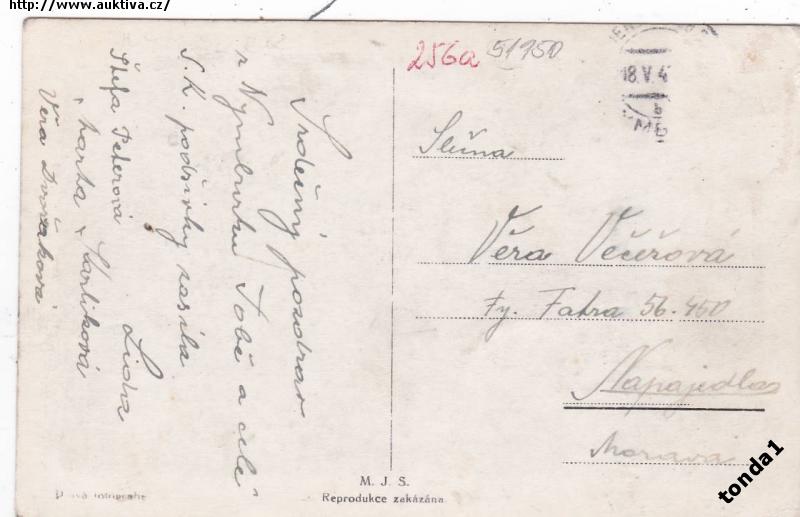 http://www.auktiva.cz/
256a
51750
18.V.4
Srdečný pozdrav
z Nymburku Tobě a celé
S.K. podšívky zasílá
Lida
Štefa Peterová
Marta Karlíková
Věra Dvořáková
Slečna
Věra Večeřová
Fy. Fatra 56-450
Napajedla
Morava
M. J. S.
Reprodukce zakázána
Pravá fotografie
tonda1